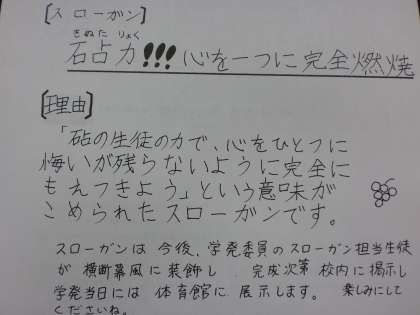 [スローガン]
きぬた りょく
砧力!!! 心を一つに 完全燃焼
[理由]
「砧の生徒の力で、心をひとつに
悔いが残らないように完全に
もえつきよう」という意味が
こめられたスローガンです。
スローガンは 今後、学発委員のスローガン担当生徒
が 横断幕風に装飾し 、完成次第 校内に掲示し
学発当日には 体育館に 展示します。 楽しみにして
くださいね。